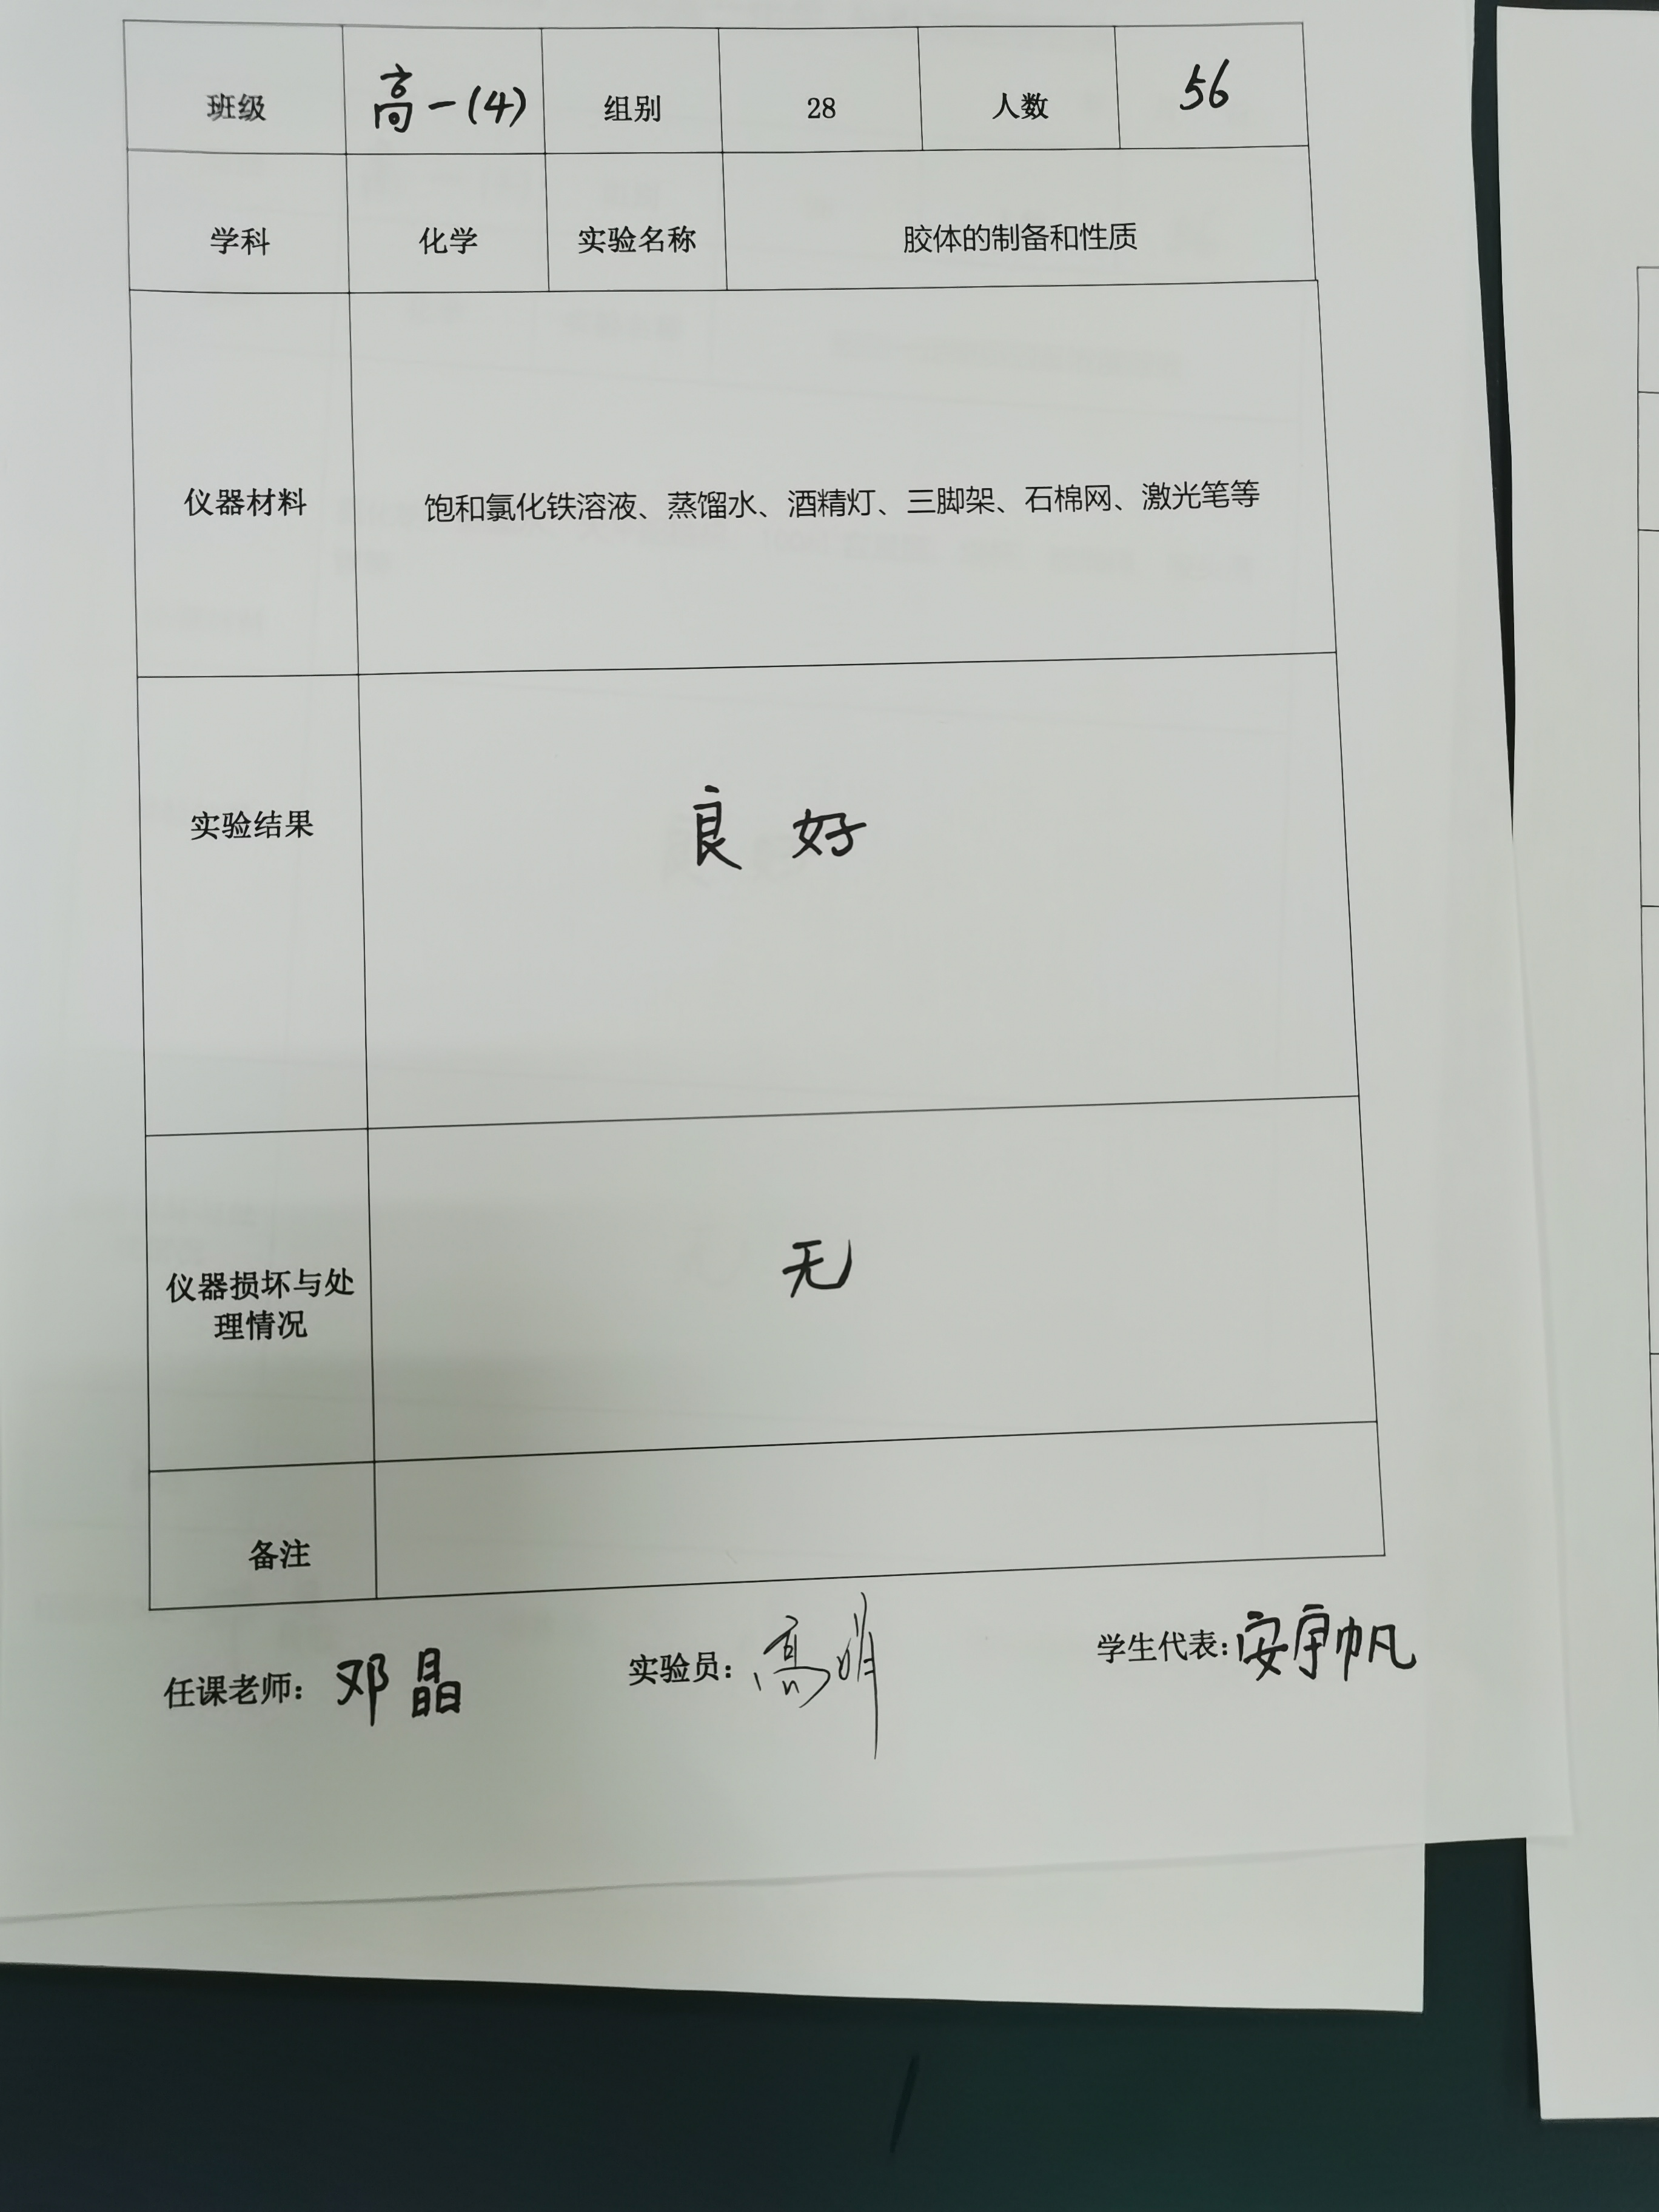 班级 高一(4) 组别 28 人数 56
学科 化学 实验名称 胶体的制备和性质
仪器材料 饱和氯化铁溶液、蒸馏水、酒精灯、三脚架、石棉网、激光笔等
实验结果 良好
仪器损坏与处
理情况 无
备注
任课老师：邓晶 实验员：高 学生代表：安宇帆